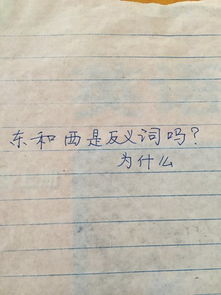 东和西是反义词吗?
为什么